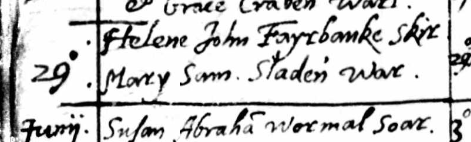 Grace Craben Warl.
Helene John Fayrbanke Skir
29° . Mary Sam. Staden War . 29°
Junij. Susan Abrahā Wormal Soar. 3°